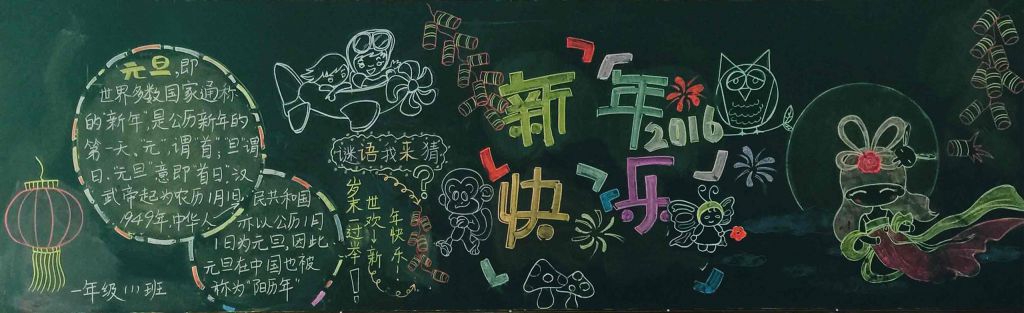 元旦,即
世界多数国家通称
的"新年",是公历新年的
第一天、元",谓"首";"旦"谓
日、元旦"意即"首日".汉
武帝起为农历1月1日,
1949年,中华人
民共和国
亦以公历1月
1日为元旦,因此,
元旦在中国也被
称为"阳历年"
一年级(1)班
谜语我来猜?
一过
世欢!新
年快乐!
新年
2016
快乐